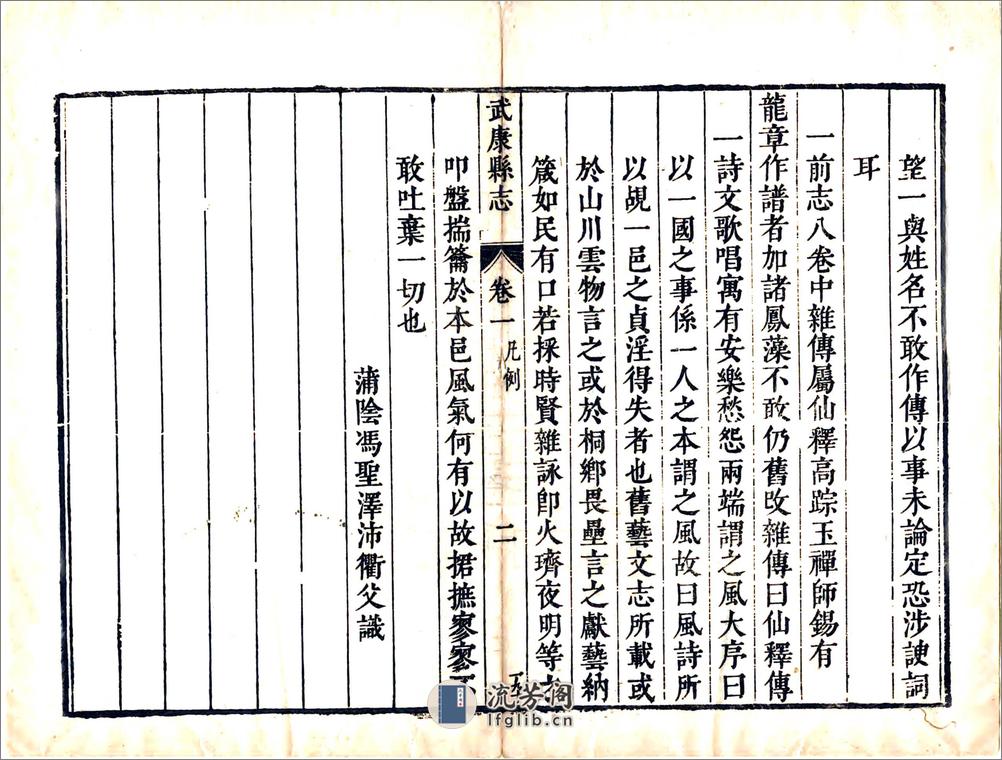 望一與姓名不敢作傳以事未論定恐涉諛詞
耳
一前志八卷中雜傳屬仙釋高踪玉禪師錫有
龍章作譜者加諸鳳藻不敢仍舊改雜傳曰仙釋傳
一詩文歌唱寓有安樂愁怨兩端謂之風大序曰
以一國之事係一人之本謂之風故曰風詩所
以覘一邑之貞淫得失者也舊藝文志所載或
於山川雲物言之或於桐鄉畏壘言之獻藝納
箴如民有口若採時賢雜詠卽火璾夜明等
武康縣志
卷一
凡例
二
叩盤揣籥於本邑風氣何有以故捃摭寥寥
敢吐棄一切也
蒲陰馮聖澤沛衢父識
流芳阁
lfglib.cn